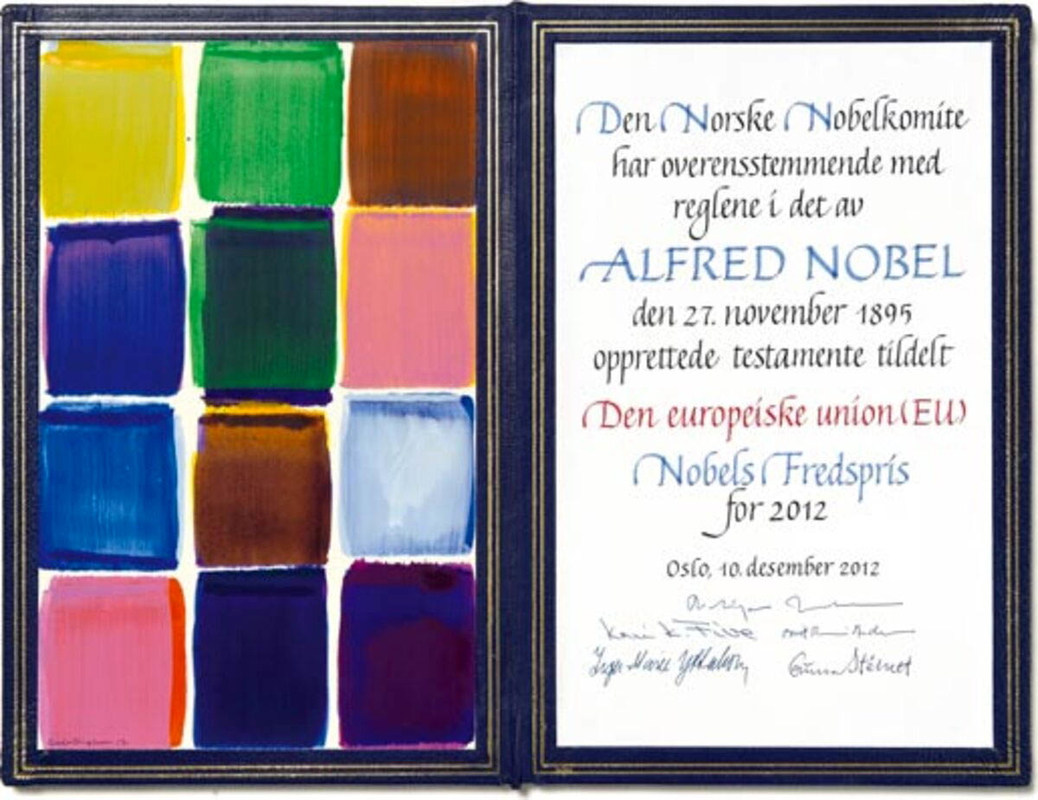 Den Norske Nobelkomite
har overensstemmende med
reglene i det av
ALFRED NOBEL
den 27. november 1895
opprettede testamente tildelt
Den europeiske union (EU)
Nobels Fredspris
for 2012
Oslo, 10. desember 2012
Kaci K. Five
Inger-Marie Ytterhorn
Gunnar Stålsett